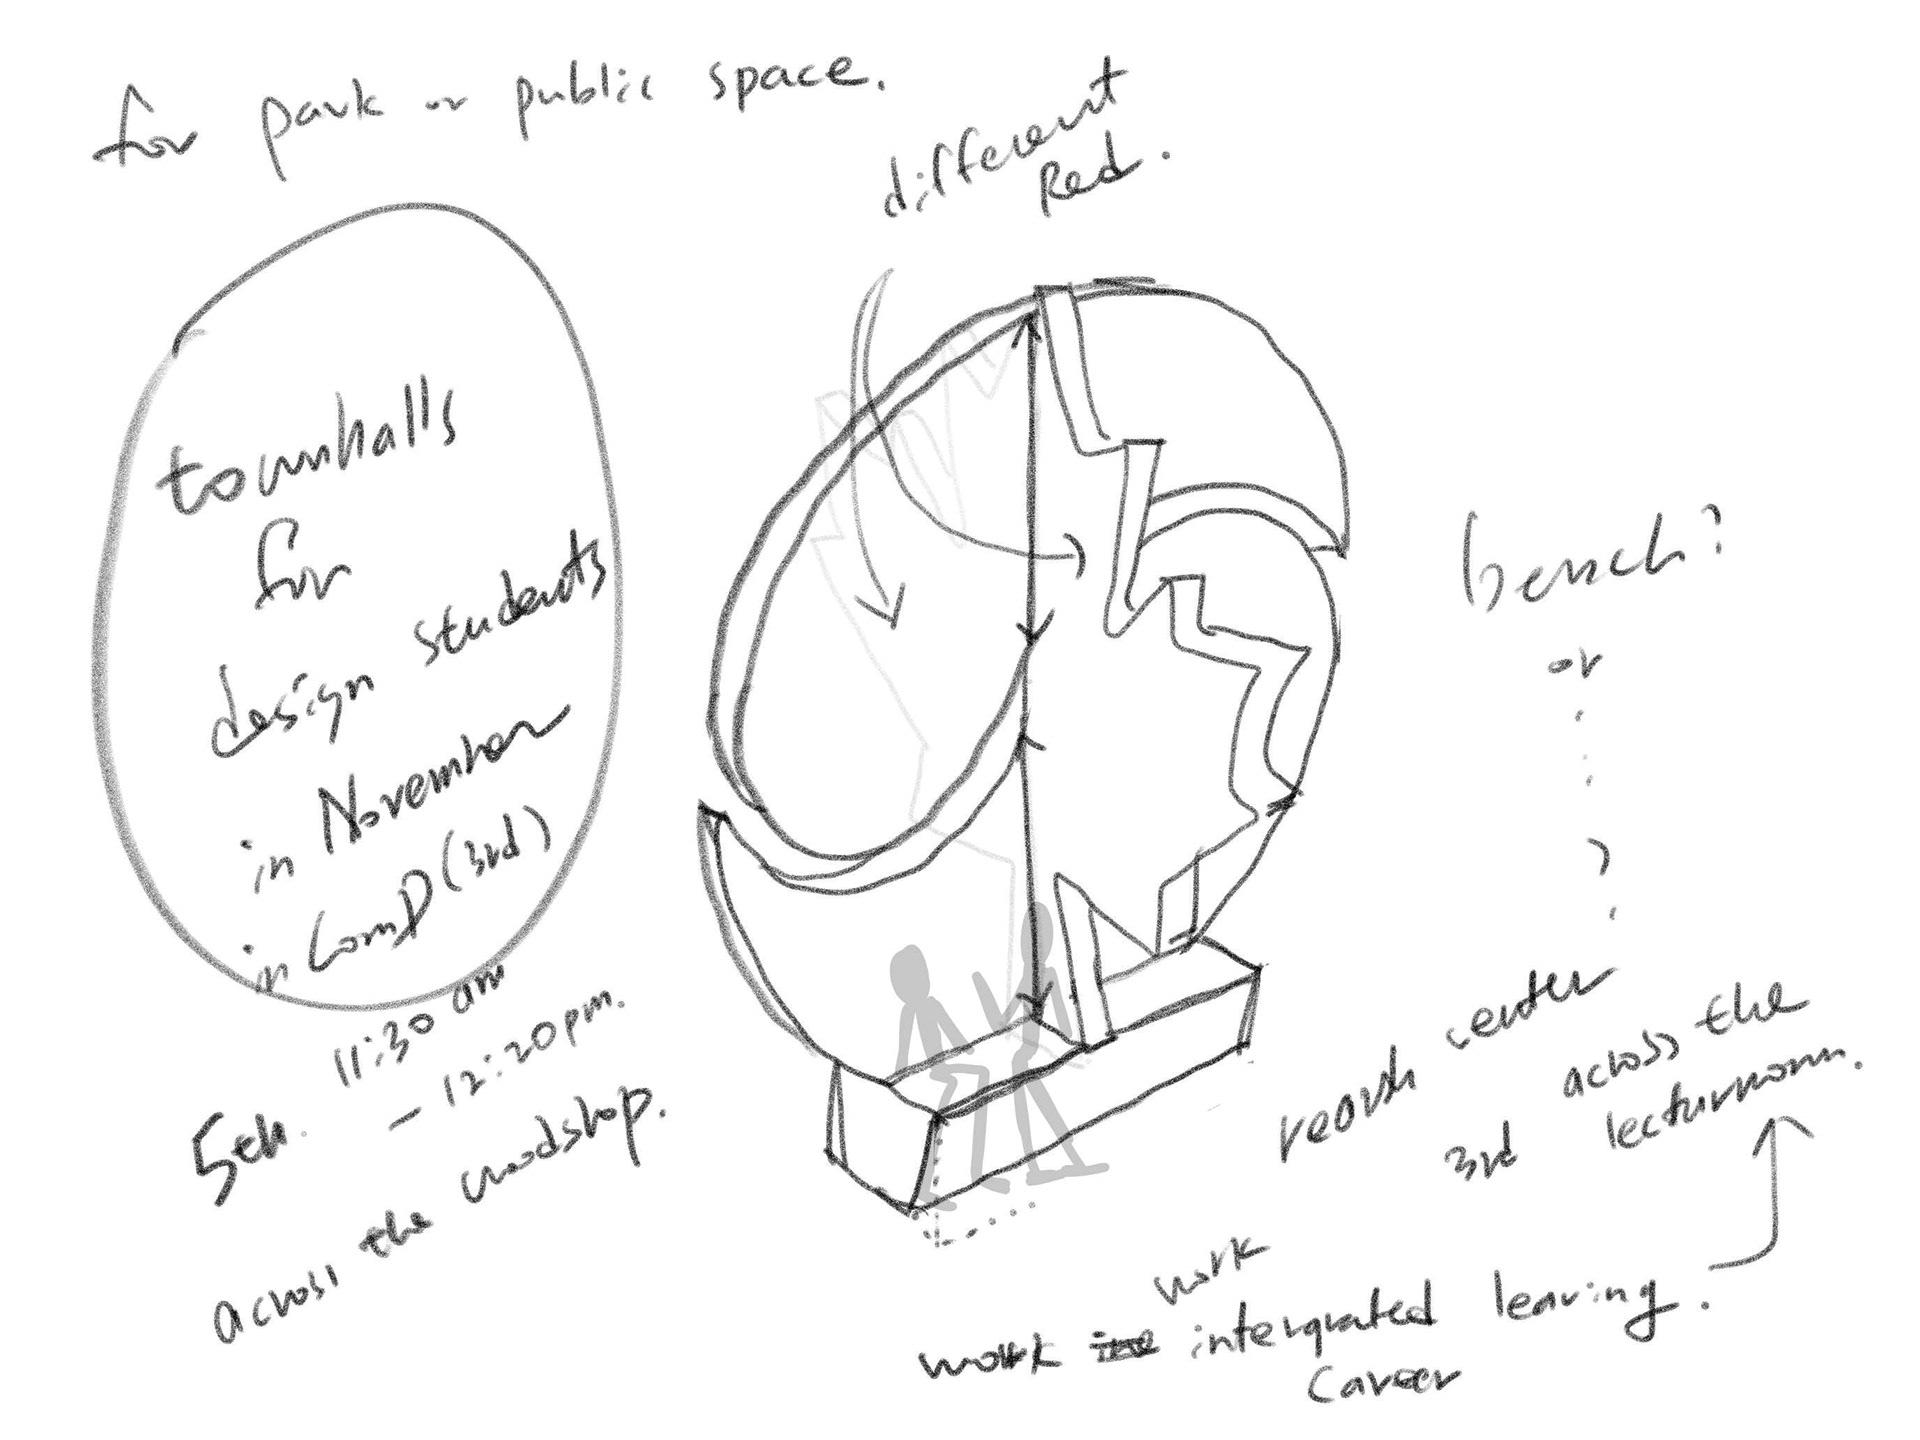 for park or public space.
different
Red.
townhalls
for
design students
in November
in ComD (3rd)
11:30 am
- 12:20 pm.
5th.
across the woodshop.
bench?
or
?
center
3rd across the
lecturroom.
work
work intergrated learing.
Career